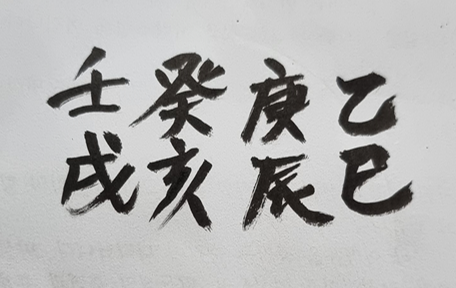 壬癸庚乙
戌亥辰巳